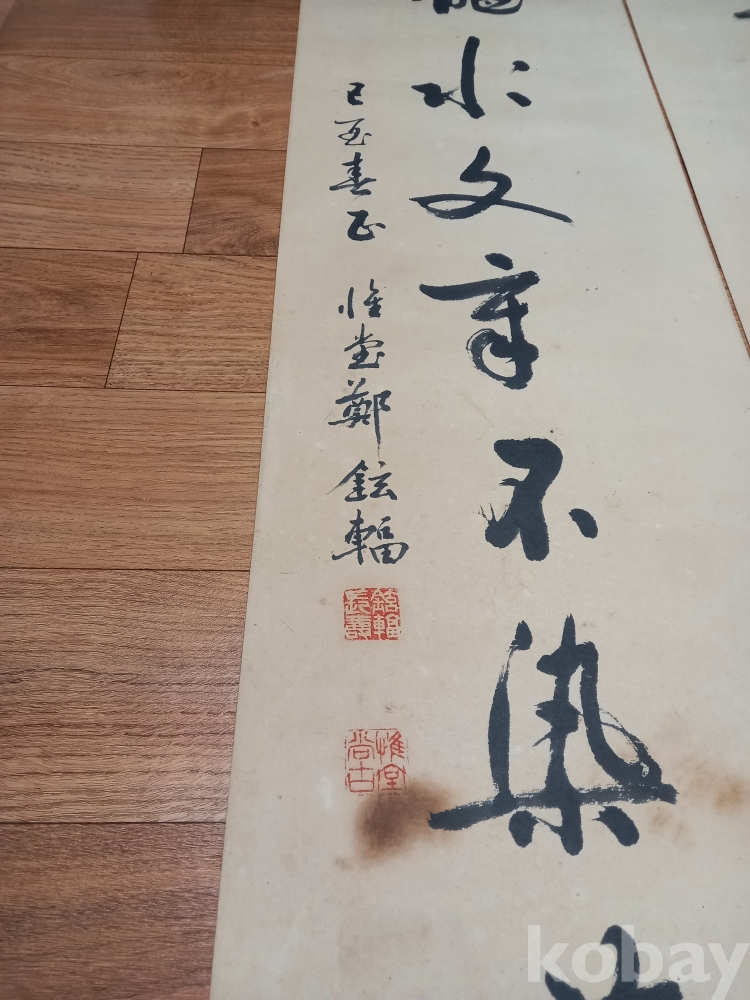 水文章不染
己酉春正 惟堂鄭鉉輻
鉉輻
長壽
惟堂
尚古
kobay